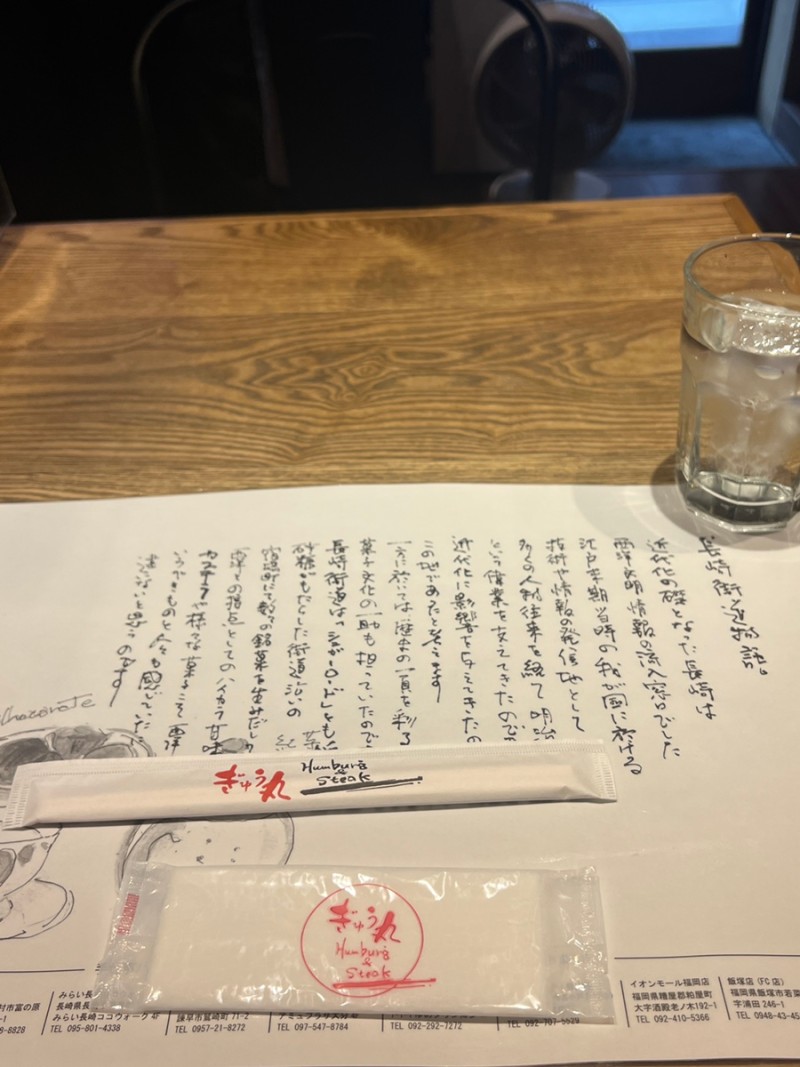 長崎街道物語。
近代化の礎となった長崎は
西洋文明 情報の流入窓口でした
江戸末期当時の我が国に於ける
技術や情報の発信地として
多くの人物往来を経て 明治
という偉業を支えてきたのです
近代化に影響を与えてきたの
この地であったと言えます
一方に於いては歴史の一頁を彩る
菓子文化の一助も担っていたのでご
長崎街道は"シュガーロード"とも
砂糖がもたらした街道沿いの
宿場町にて数々の銘菓を生みだし
西洋との接点としてのハイカラ甘味
カステラや様々な菓子こそ 西洋
いうべきものと人々も感じていた
違いないと思うのです
Chocolate
ぎゅう丸
Humburg
&
Steak
ぎゅう丸
Humburg
&
Steak
村市富の原
みらい長
長崎県長
みらい長崎ココウォーク 4F
TEL 095-801-4338
諫早市鷲崎町 71-2
TEL 0957-21-8272
アミュプラザ大分 4F
TEL 097-547-8784
TEL 092-292-7272
TEL 092-707-5639
イオンモール福岡店
福岡県糟屋郡粕屋町
大字酒殿老ノ木192-1
TEL 092-410-5366
飯塚店(FC店)
福岡県飯塚市若菜
字浦田 246-1
TEL 0948-43-45